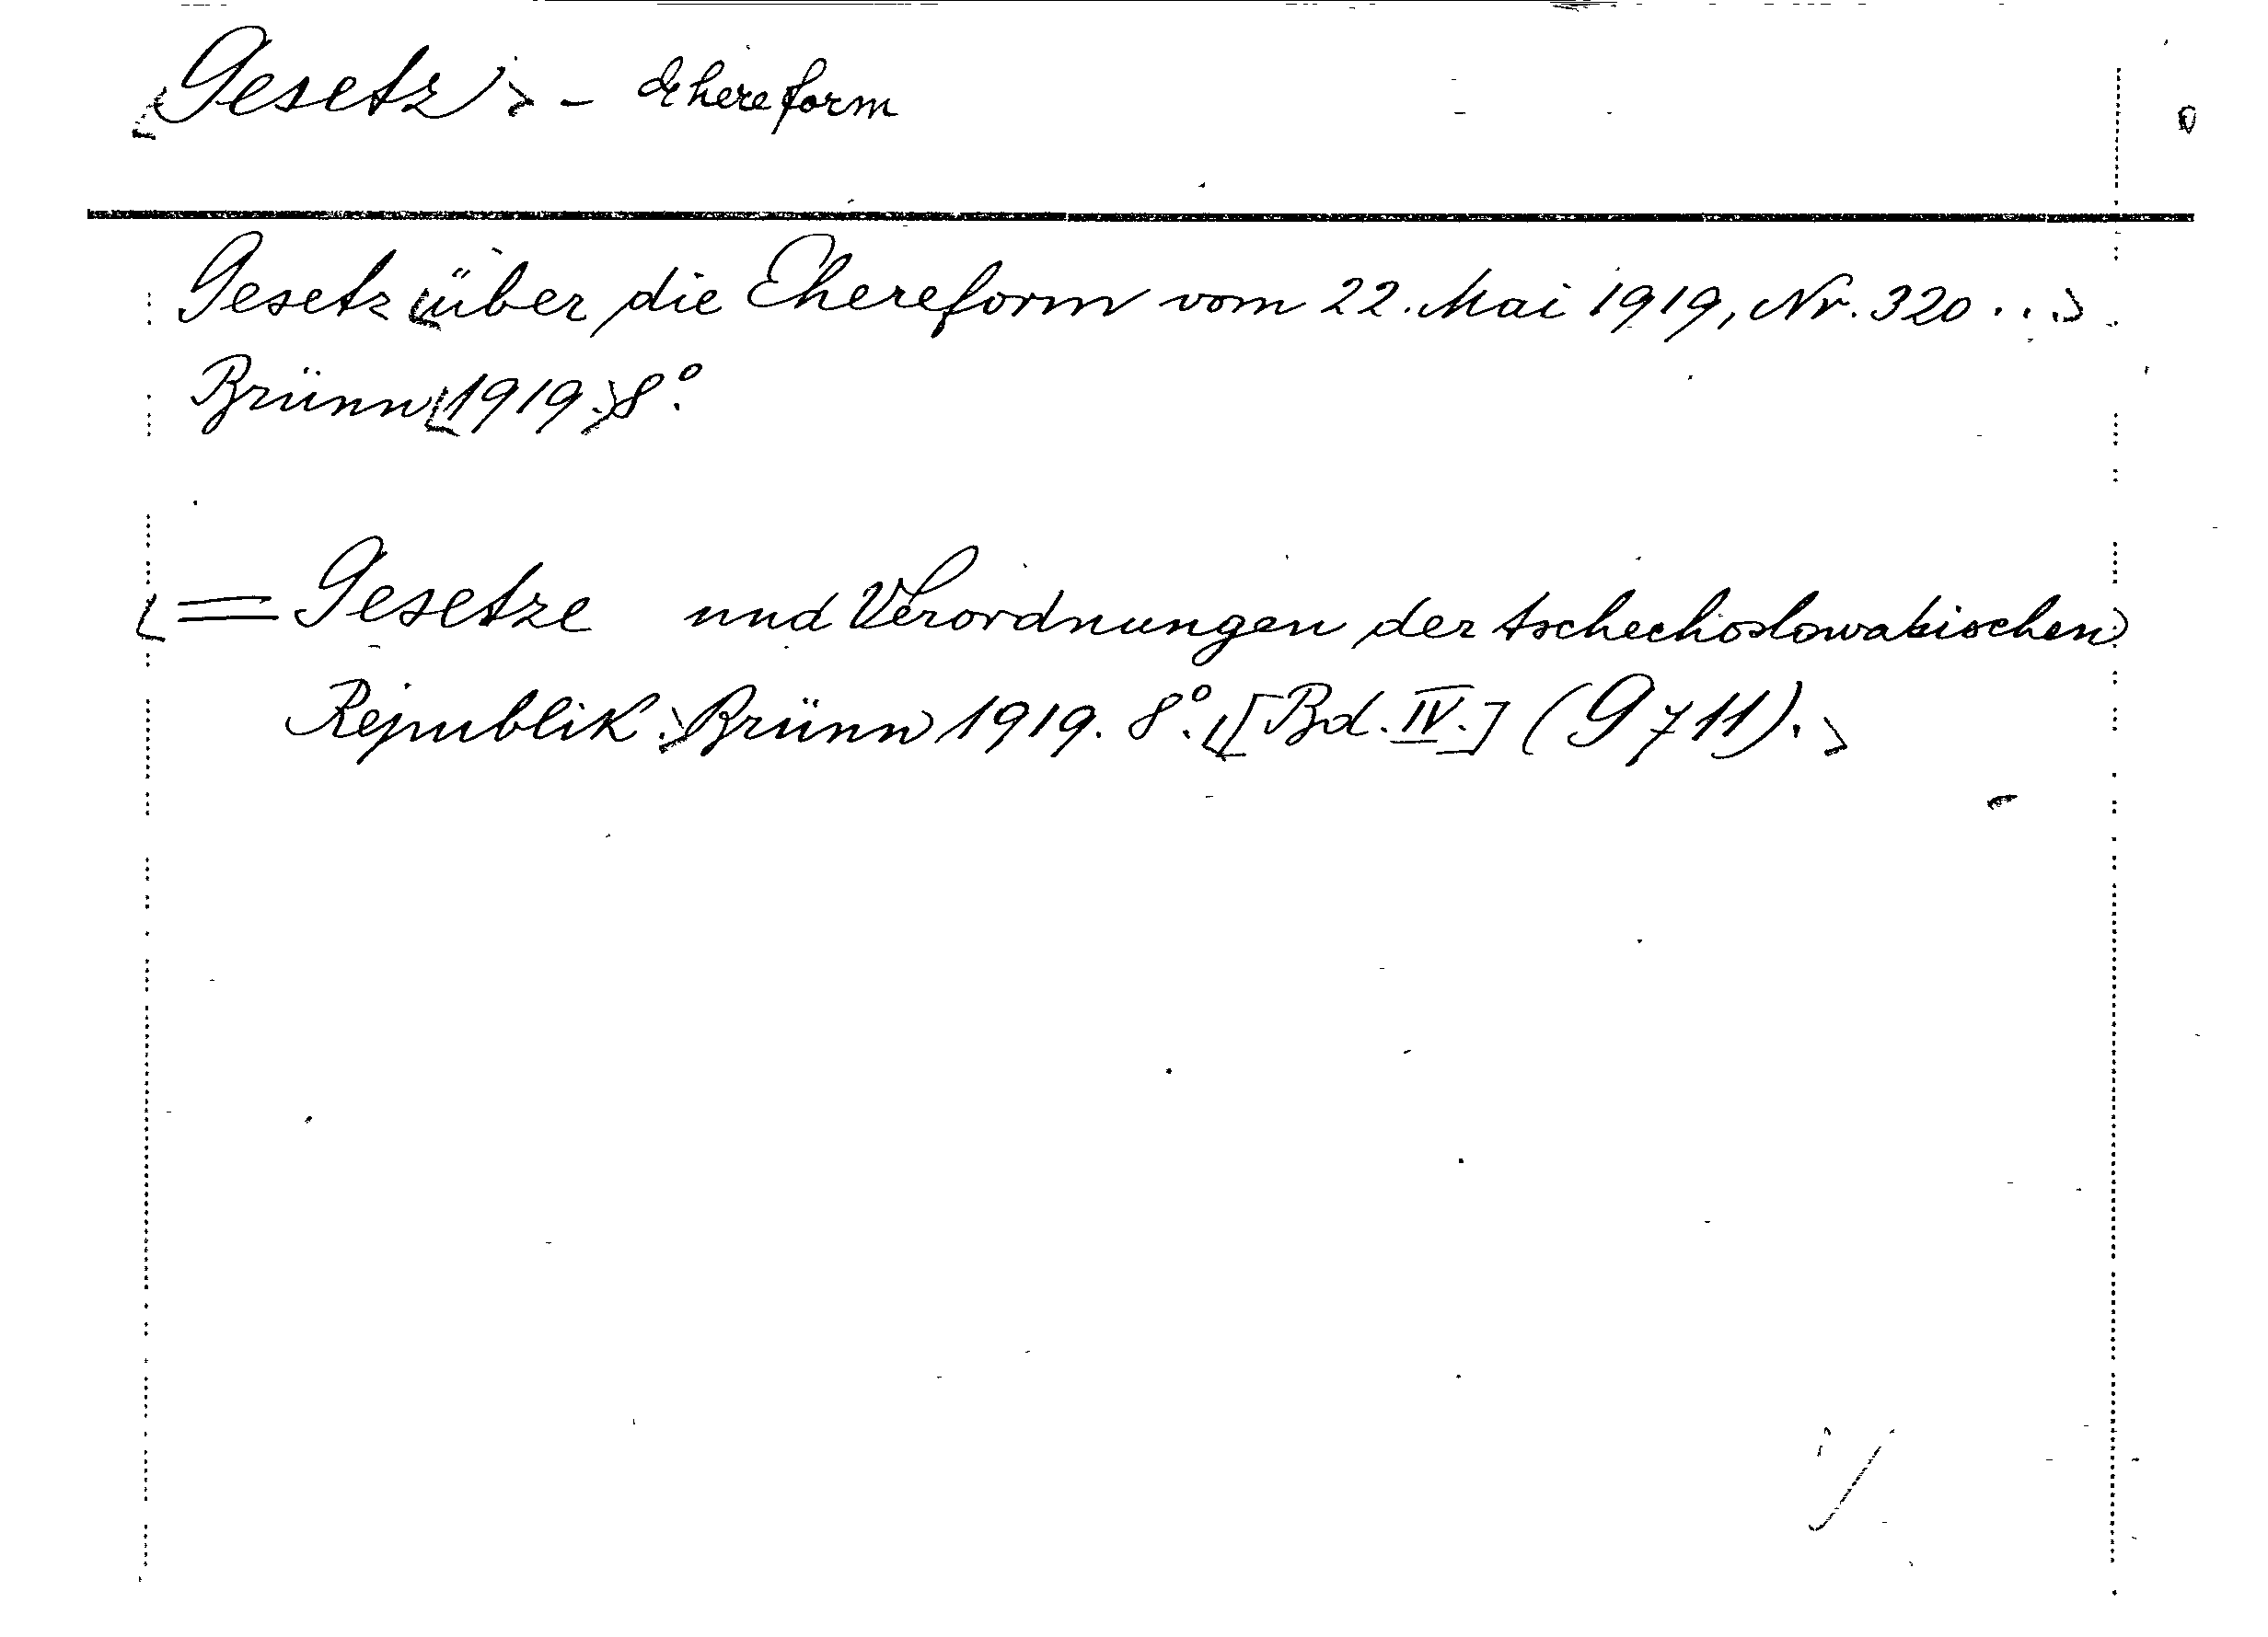 <Gesetz> - Ehereform
Gesetz <über die Ehereform vom 22. Mai 1919, Nr. 320 ...>
Brünn <1919.> 8°.
<= Gesetze und Verordnungen der tschechoslowakischen
Republik.> Brünn 1919. 8°. <[Bd. IV.] (9711).>